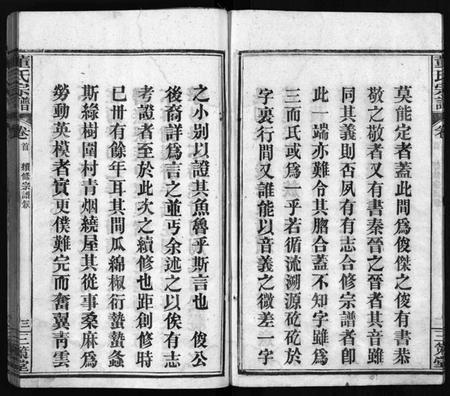 莫能定者蓋此間爲俊傑之俊有書恭
敬之敬者又有書秦晉之晉者其音雖
同其義則否夙有有志合修宗譜者即
此一端亦難令其脗合蓋不知字雖爲
三而氏或爲一乎若循流溯源矻矻於
字裏行間又誰能以音義之微差一字
之小別以證其魚魯乎斯言也 俊公
後裔詳爲言之並丐余述之以俟有志
考證者至於此次之續修也距創修時
巳卅有餘年耳其間瓜綿椒衍蟄蟄螽
斯綠樹圍村青烟繞屋其從事桑麻爲
勞動英模者實更僕難完而奮翼青雲
董氏宗譜 卷首 續修宗譜叙 三 三策堂
董氏宗譜 卷